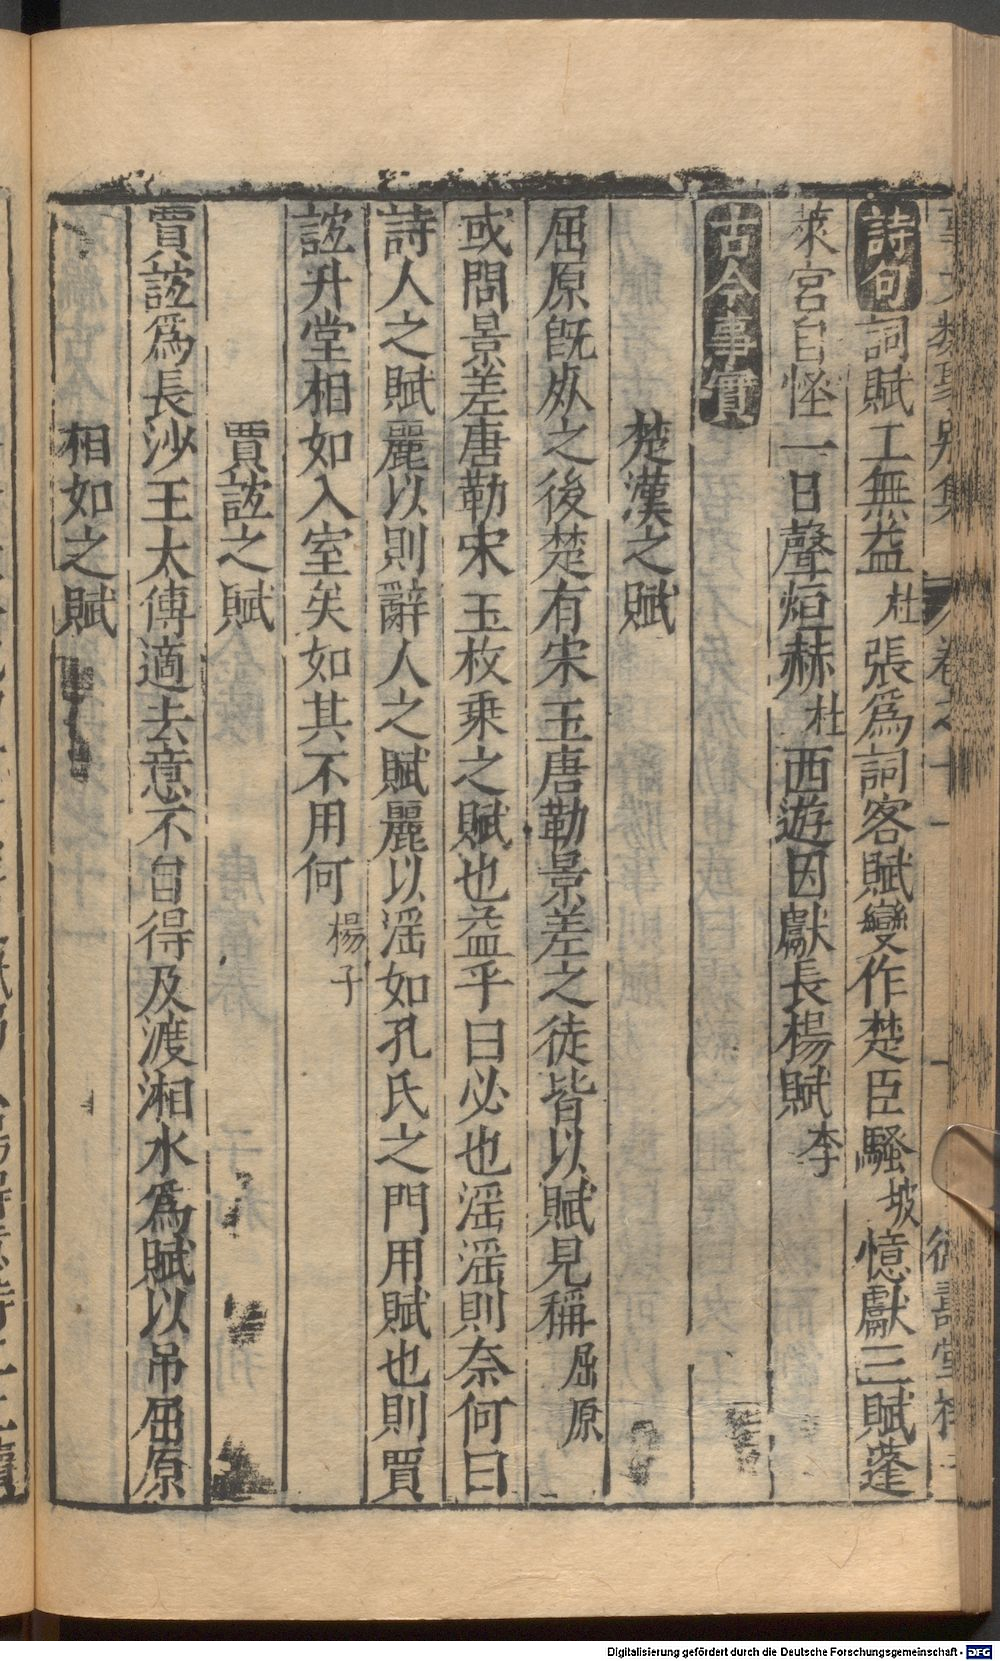 詩句詞賦工無益杜張爲詞客賦變作楚臣騷坡憶獻三賦蓬
萊宮自怪一日聲烜赫杜西遊因獻長楊賦李
古今事實
楚漢之賦
屈原旣死之後楚有宋玉唐勒景差之徒皆以賦見稱屈原
或問景差唐勒宋玉枚乗之賦也益乎曰必也滛滛則奈何曰
詩人之賦麗以則辭人之賦麗以滛如孔氏之門用賦也則賈
誼升堂相如入室矣如其不用何楊子
賈誼之賦
賈誼爲長沙王太傅適去意不自得及渡湘水爲賦以吊屈原
相如之賦
Digitalisierung gefördert durch die Deutsche Forschungsgemeinschaft - DFG